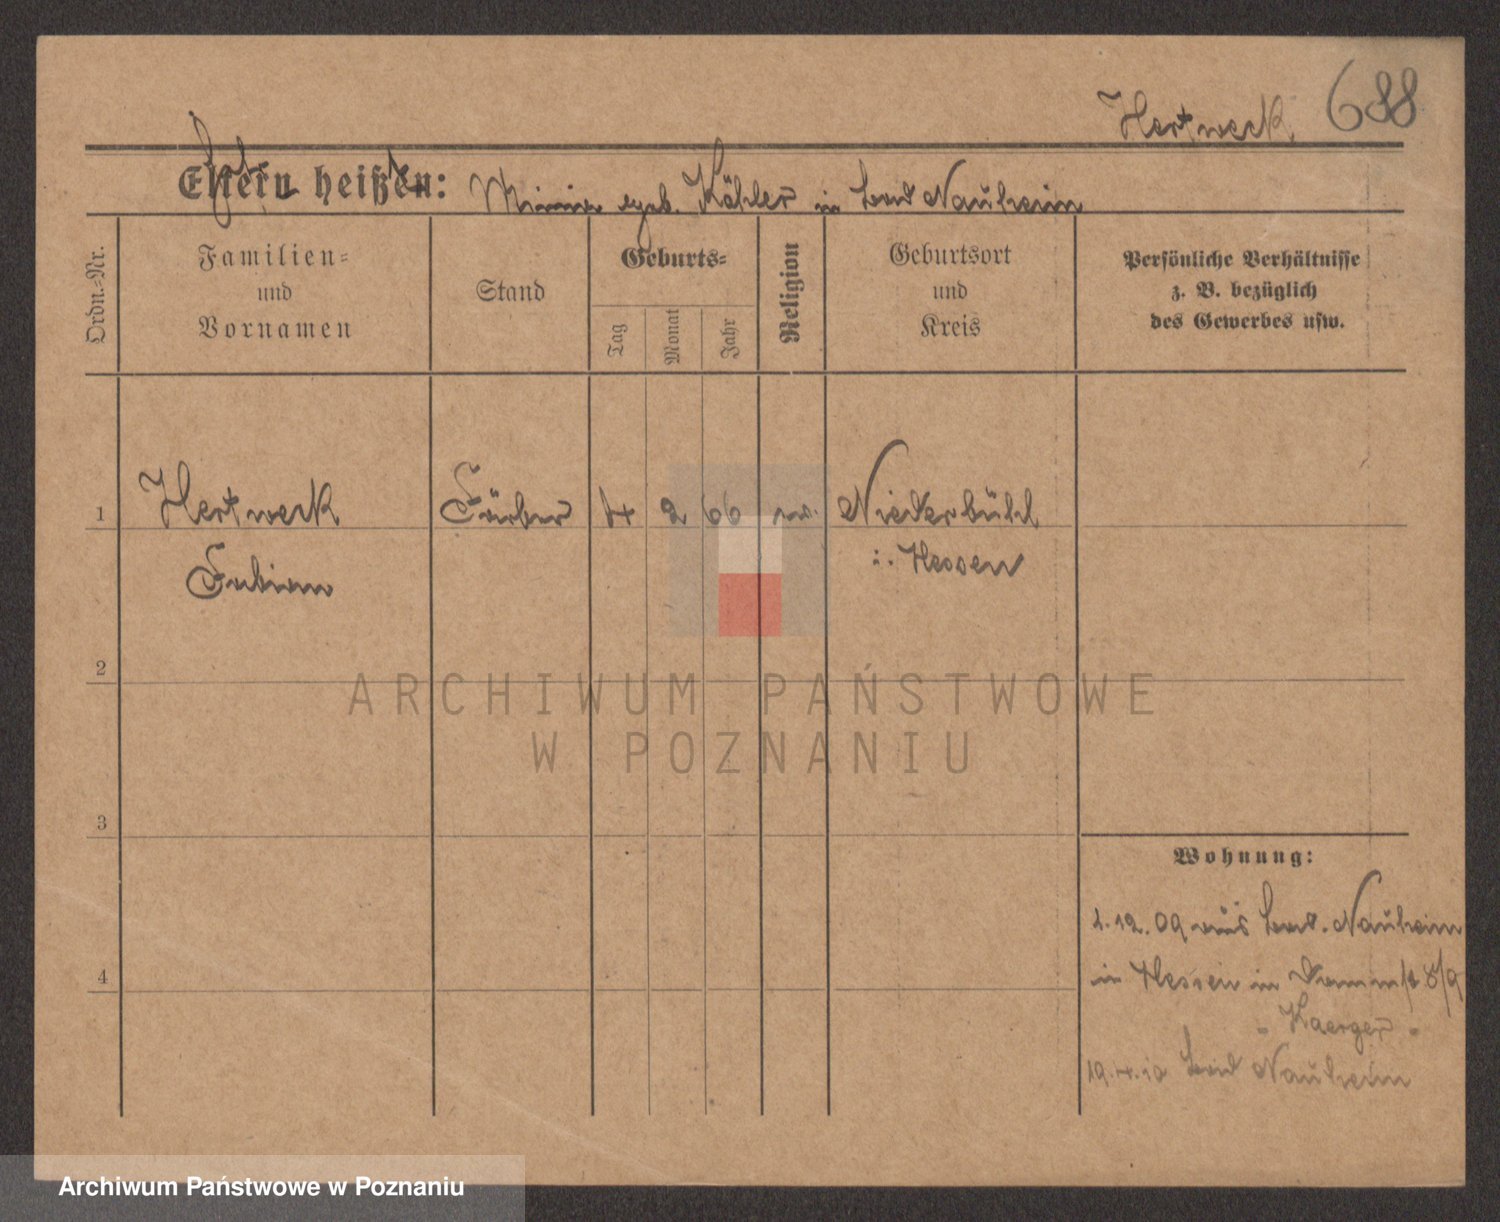 Hertweck 688
Eltern heißen: Minna geb. Köhler in Bad Nauheim
Ordn.-Nr.
Familien-
und
Vornamen
Stand
Geburts-
Tag
Monat
Jahr
Religion
Geburtsort
und
Kreis
Persönliche Verhältnisse
z. B. bezüglich
des Gewerbes usw.
1 Hertweck Färber 4 2 66 Niederbühl
Fabian i. Hessen
2
3
4
ARCHIWUM PAŃSTWOWE
W POZNANIU
Wohnung:
1.12.09 aus Bad. Nauheim
in Hessen in 8/9
" Kaerger "
19.4.10 Bad Nauheim
Archiwum Państwowe w Poznaniu